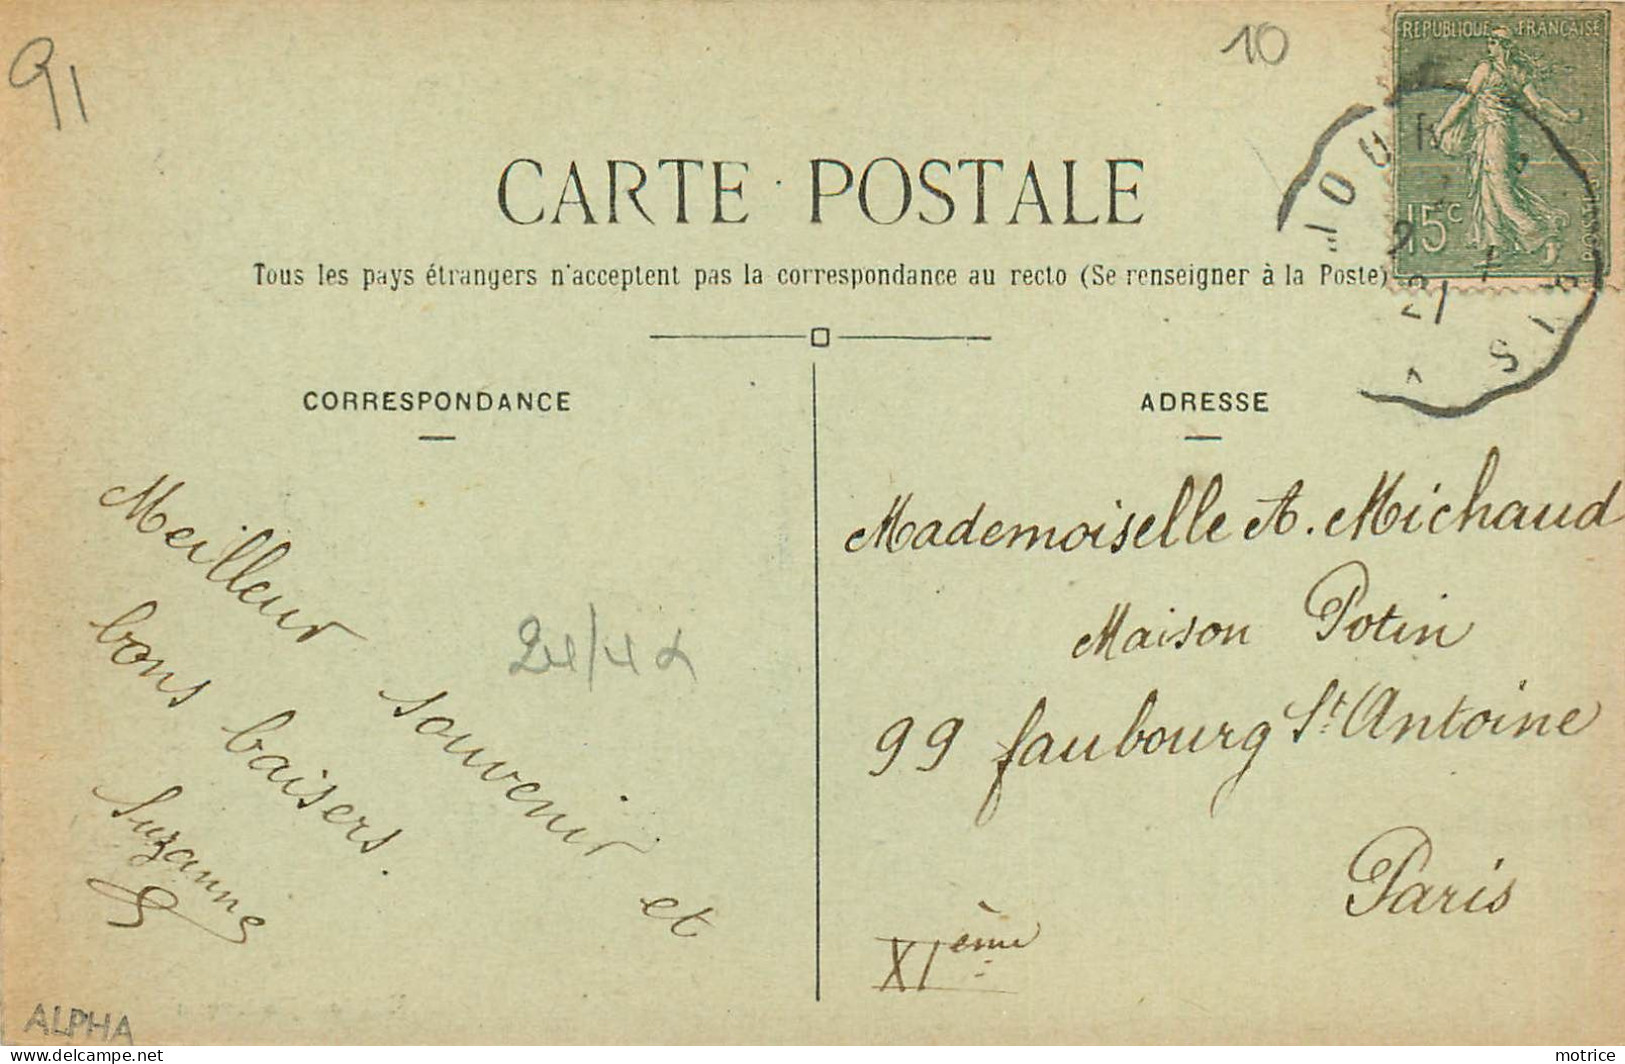 91
10
REPUBLIQUE FRANÇAISE
15c
CARTE POSTALE
Tous les pays étrangers n'acceptent pas la correspondance au recto (Se renseigner à la Poste)
CORRESPONDANCE
Meilleur souvenir et
bons baisers.
Suzanne
24/4α
ALPHA
ADRESSE
Mademoiselle A. Michaud
Maison Potin
99 faubourg St Antoine
Paris
XIème
delcampe.net
motrice